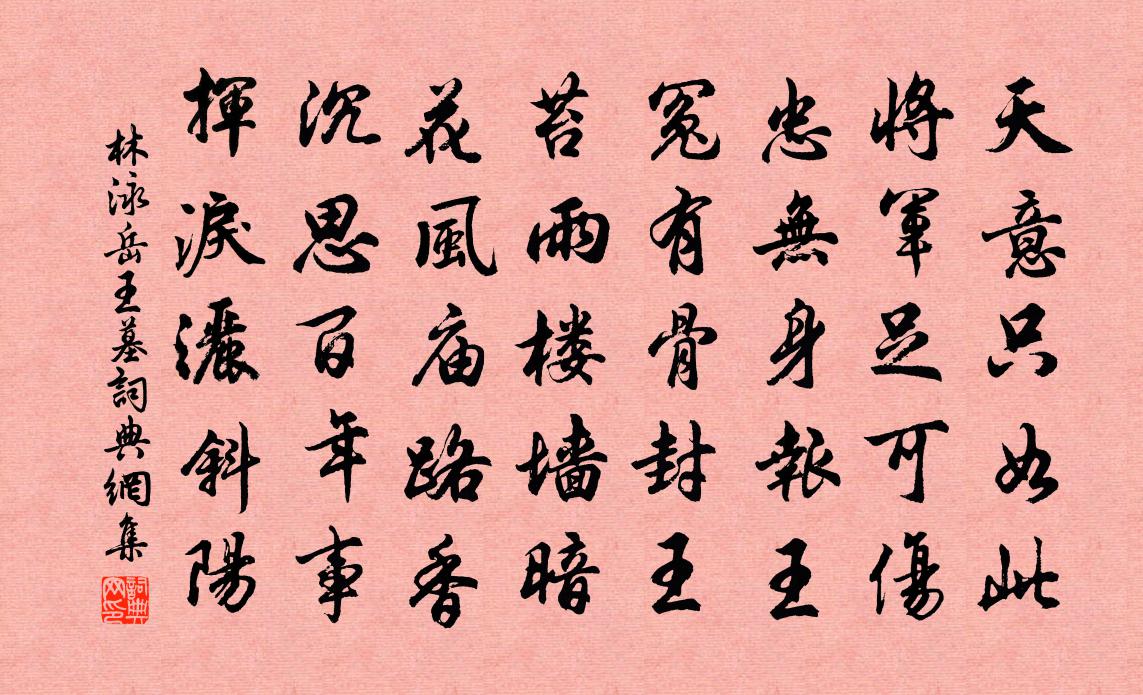 天意只如此
將軍足可傷
忠無身報王
冤有骨封王
苔雨楼墙暗
花風庙路香
沉思百年事
揮淚灑斜陽
林泳岳王墓詞典網集
詞典网印